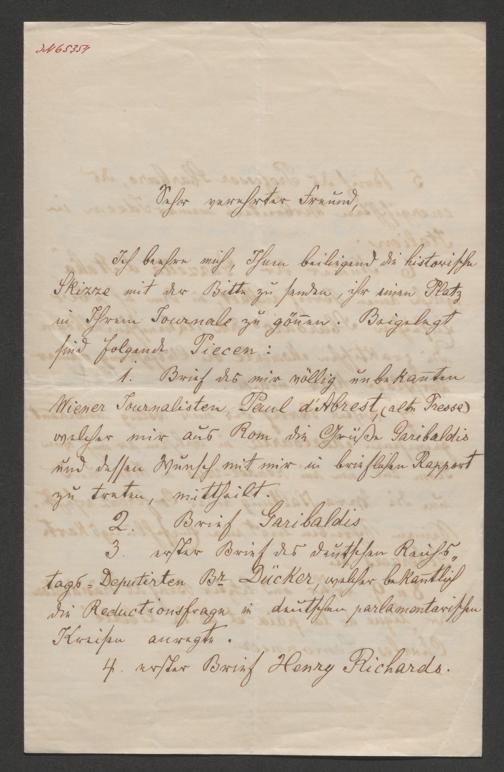 IN 65354
Sehr verehrter Freund,
Ich beehre mich, Ihnen beiliegend die historische
Skizze mit der Bitte zu senden, ihr einen Platz
in Ihrem Journale zu gönnen. Beigelegt
sind folgende Piecen:
1. Brief des mir völlig unbekannten
Wiener Journalisten Paul d'Abrest, (alte Presse)
welcher mir aus Rom die Grüße Garibaldis
und dessen Wunsch mit mir in brieflichen Rapport
zu treten, mittheilt.
2. Brief Garibaldis
3. erster Brief des deutschen Reichs-
tags-Deputirten Br Dücker, welcher bekantlich
die Reductionsfrage in deutschen parlamentarischen
Kreisen anregte.
4. erster Brief Henry Richards.